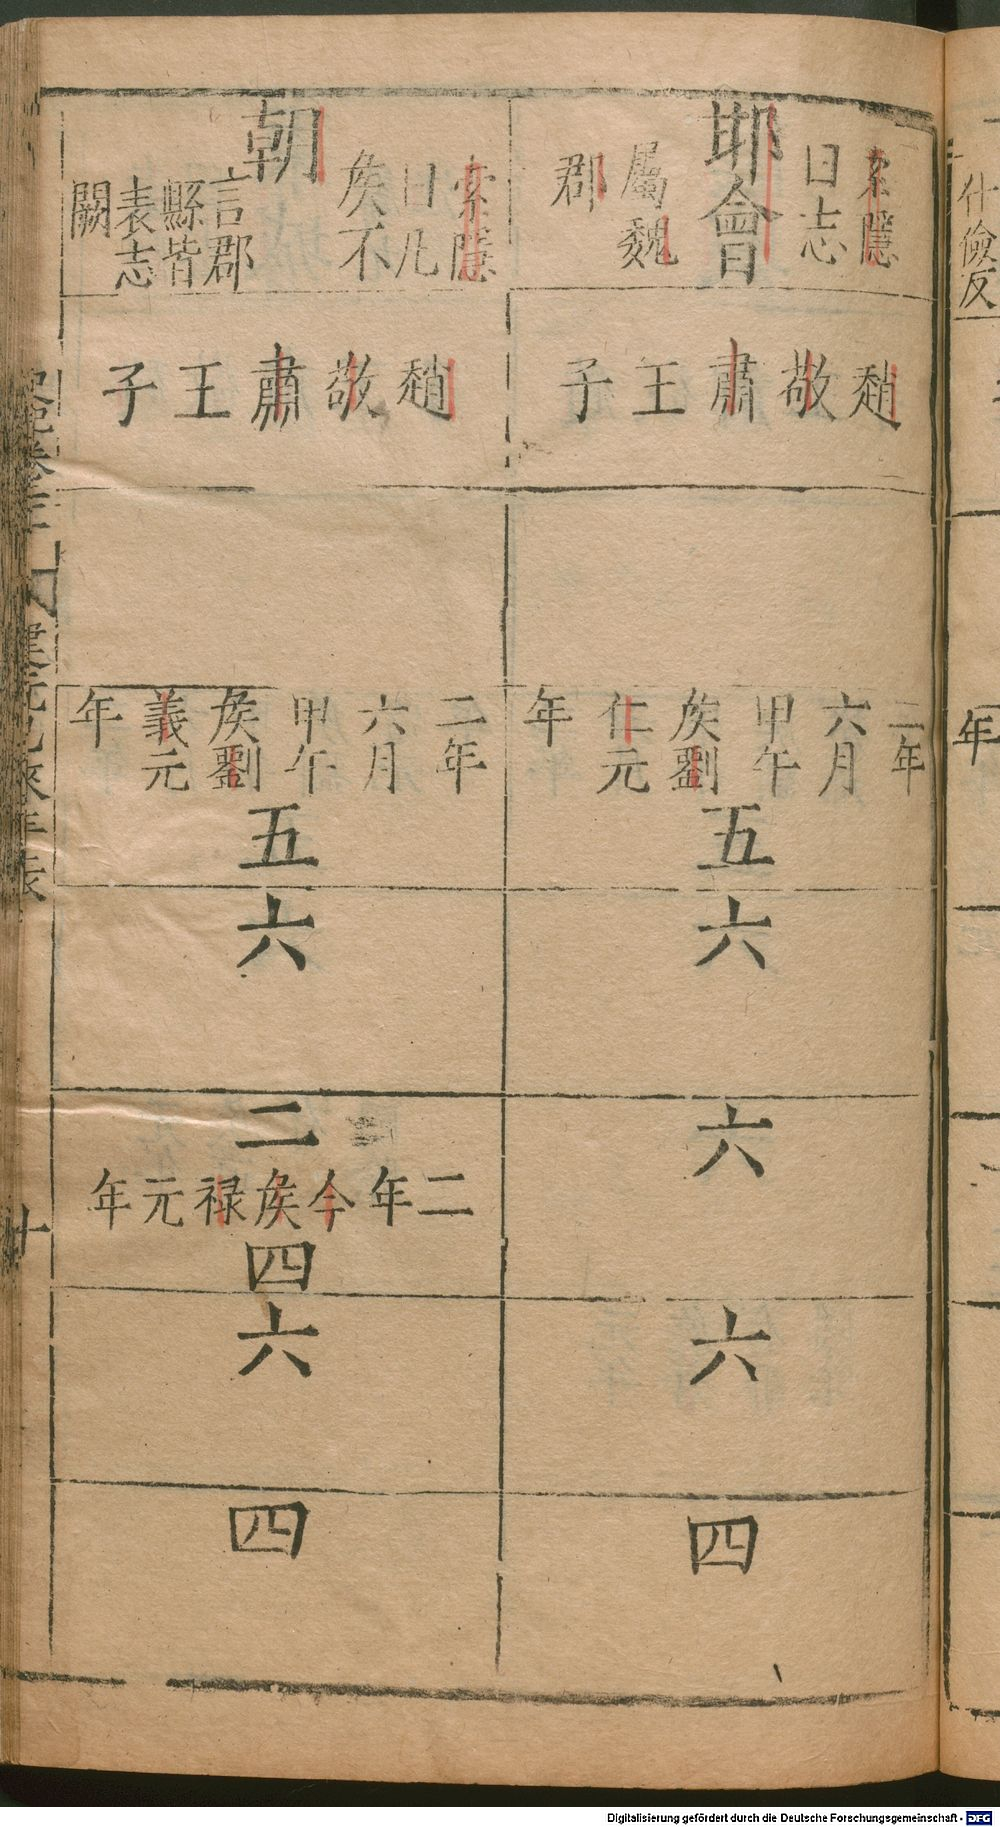 什儉反
年
索隱
曰志
邯會
屬魏
郡
趙敬肅王子
二年
六月
甲午
侯劉
仁元
年
五
六
六
六
四
索隱
曰凡
侯不
朝
言郡
縣皆
表志
闕
趙敬肅王子
二年
六月
甲午
侯劉
義元
年
五
六
二
二年今侯祿元年
四
六
四
十
Digitalisierung gefördert durch die Deutsche Forschungsgemeinschaft - DFG